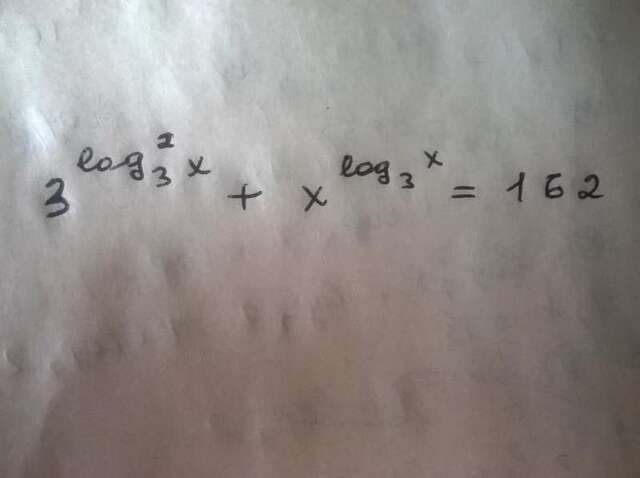 3^{log_3^2 x} + x^{log_3 x} = 162